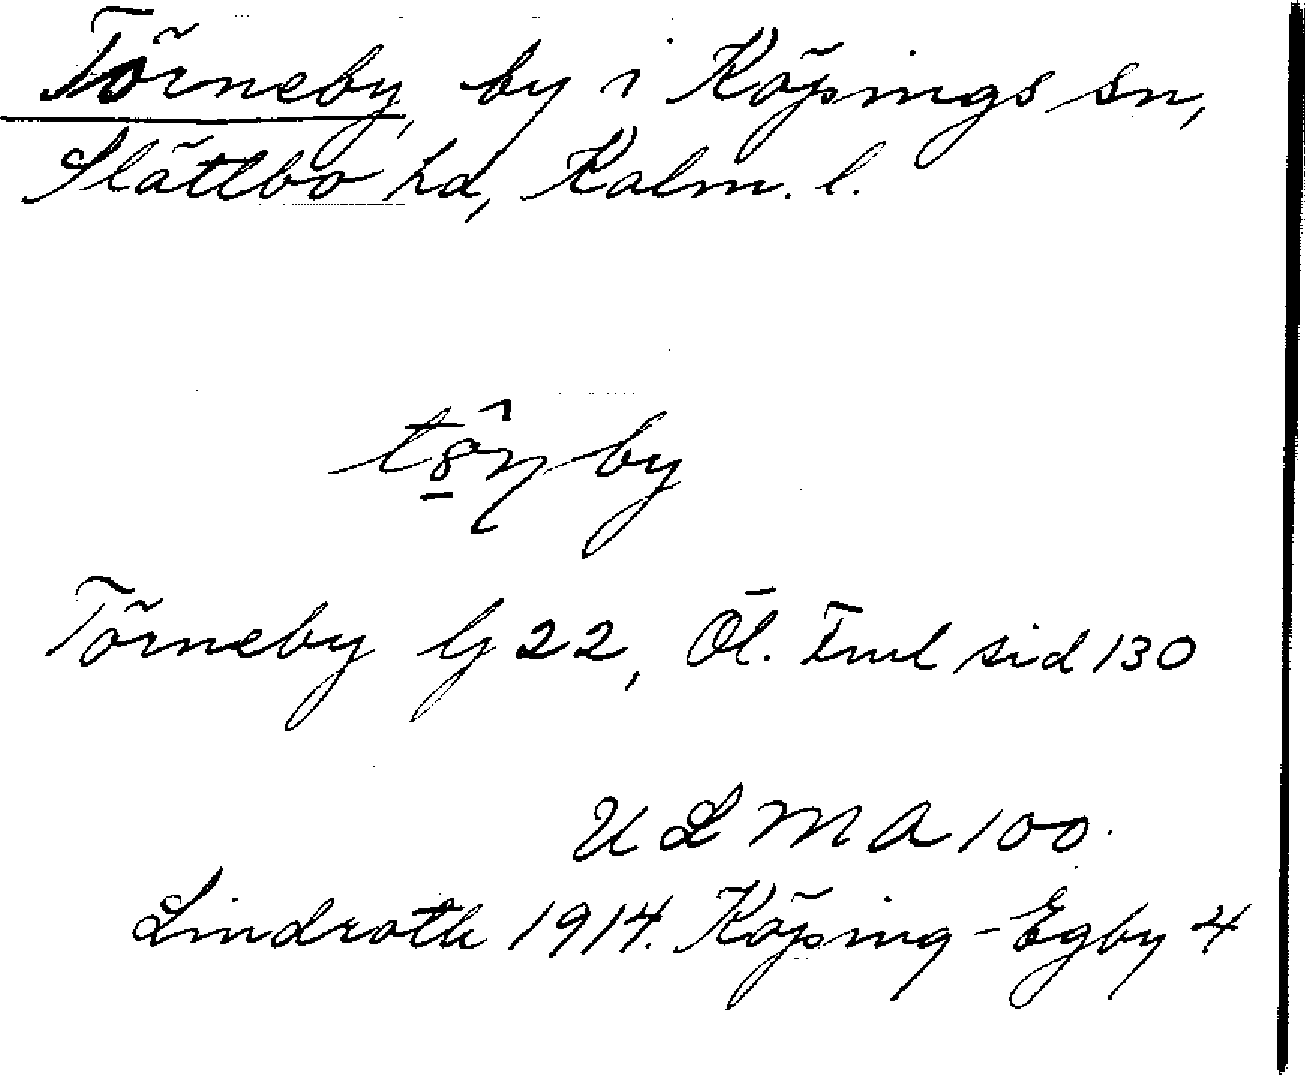 Törneby, by i Köpings sn,
Slättbo hd, Kalm. l.
by
Törneby G 22, Öl. Fml sid 130
ULMA 100.
Lindroth 1914. Köping-Egby 4